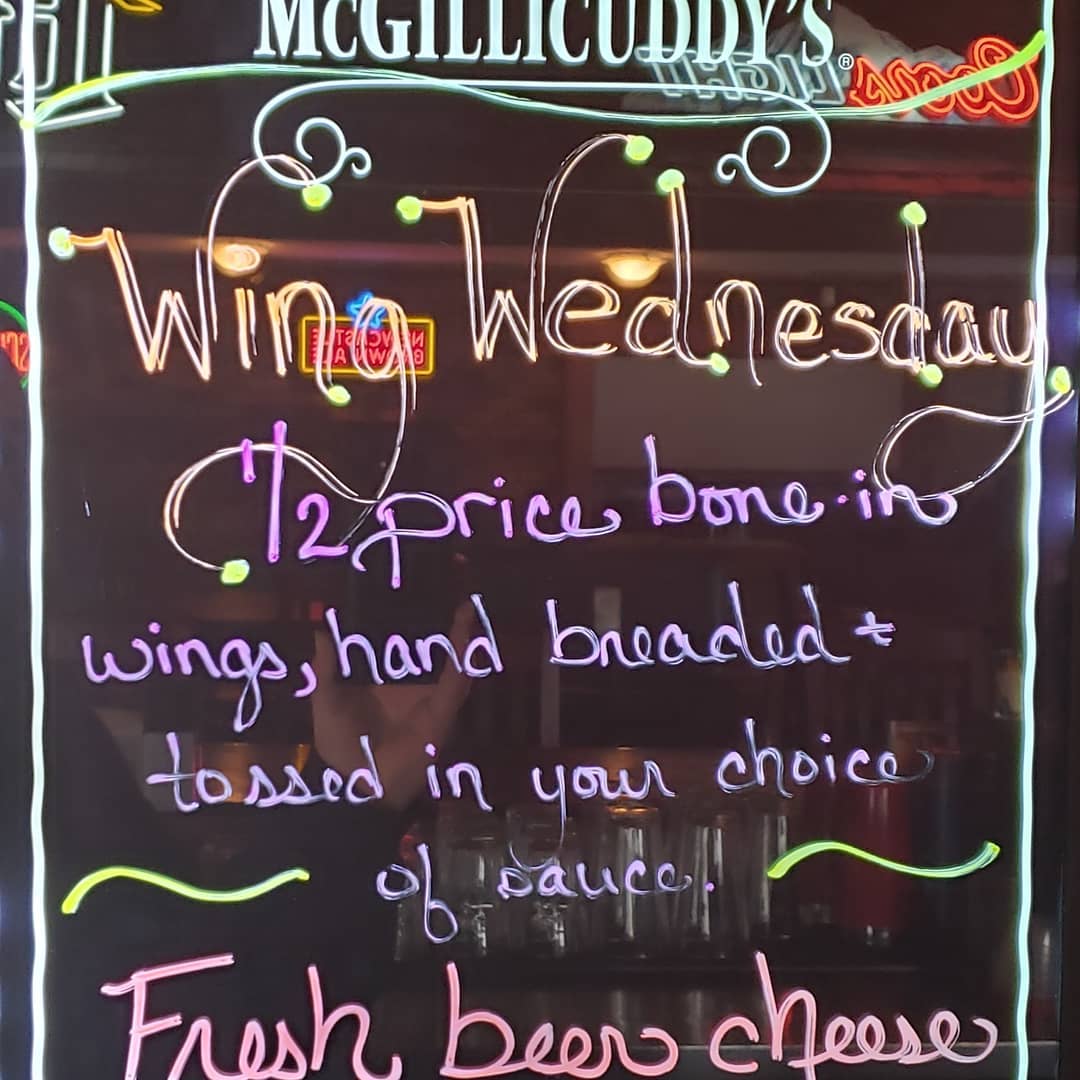 McGILLICUDDY'S®
Coors LIGHT
Wing Wednesday
NEWCASTLE
BROWN ALE
1/2 price bone-in
wings, hand breaded +
tossed in your choice
of sauce.
Fresh beer cheese